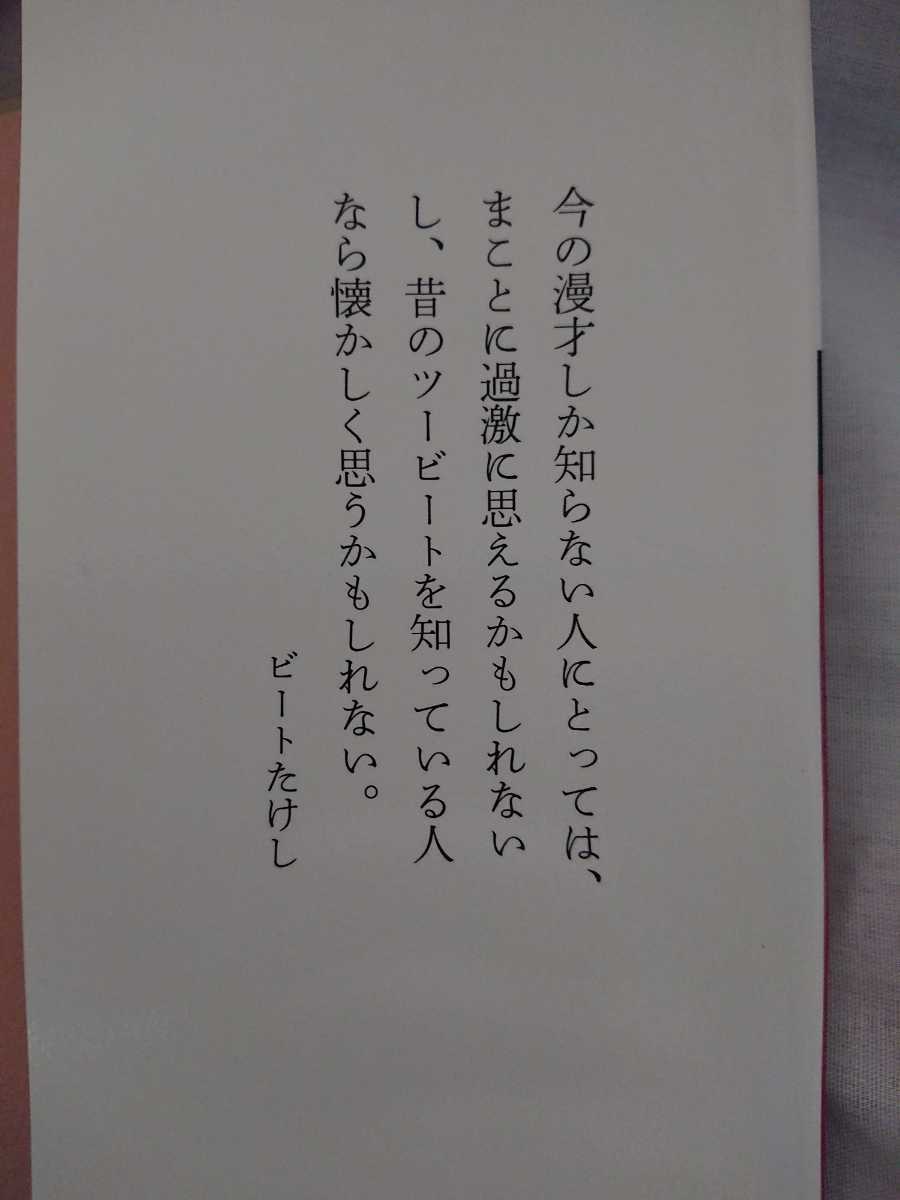 今の漫才しか知らない人にとっては、
まことに過激に思えるかもしれない
し、昔のツービートを知っている人
なら懐かしく思うかもしれない。
ビートたけし